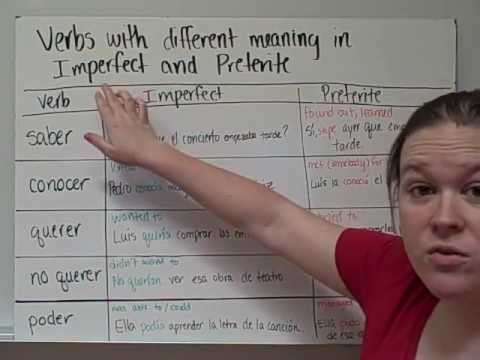 Verbs with different meaning in
Imperfect and Preterite
Verb Imperfect Preterite
saber
el concierto empezaba tarde?
found out, learned
Sí, supe ayer que
tarde.
conocer
Pedro conocía
met (somebody) for
Luis la conoció el
querer
wanted to
Luis quería comprar las
to
no querer
didn't want to
No querían ver esa obra de teatro.
poder
was able to / could
Ella podía aprender la letra de la canción.
Ella pudo
de